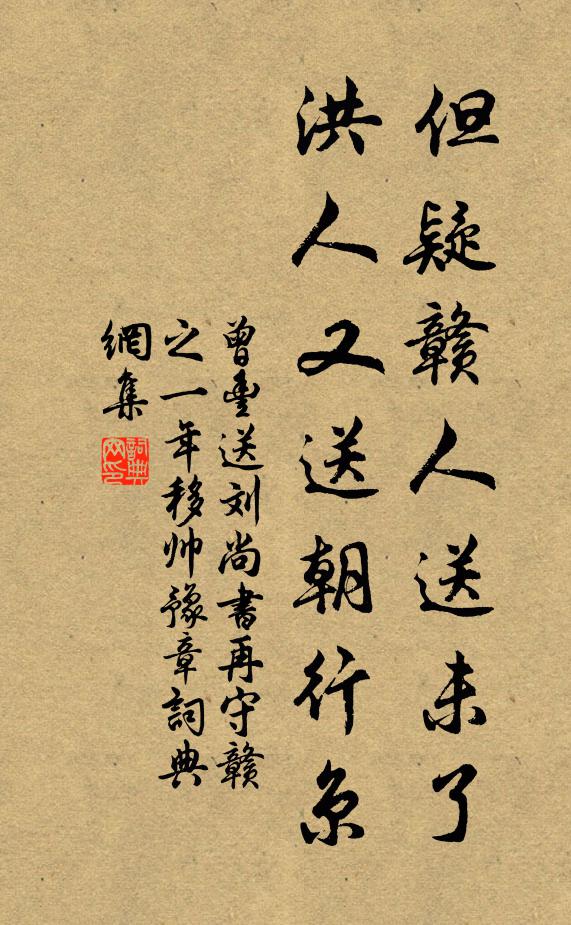 但疑赣人送未了
洪人又送朝行京
曾丰送刘尚書再守赣
之一年移帅豫章詞典
網集
詞典网印